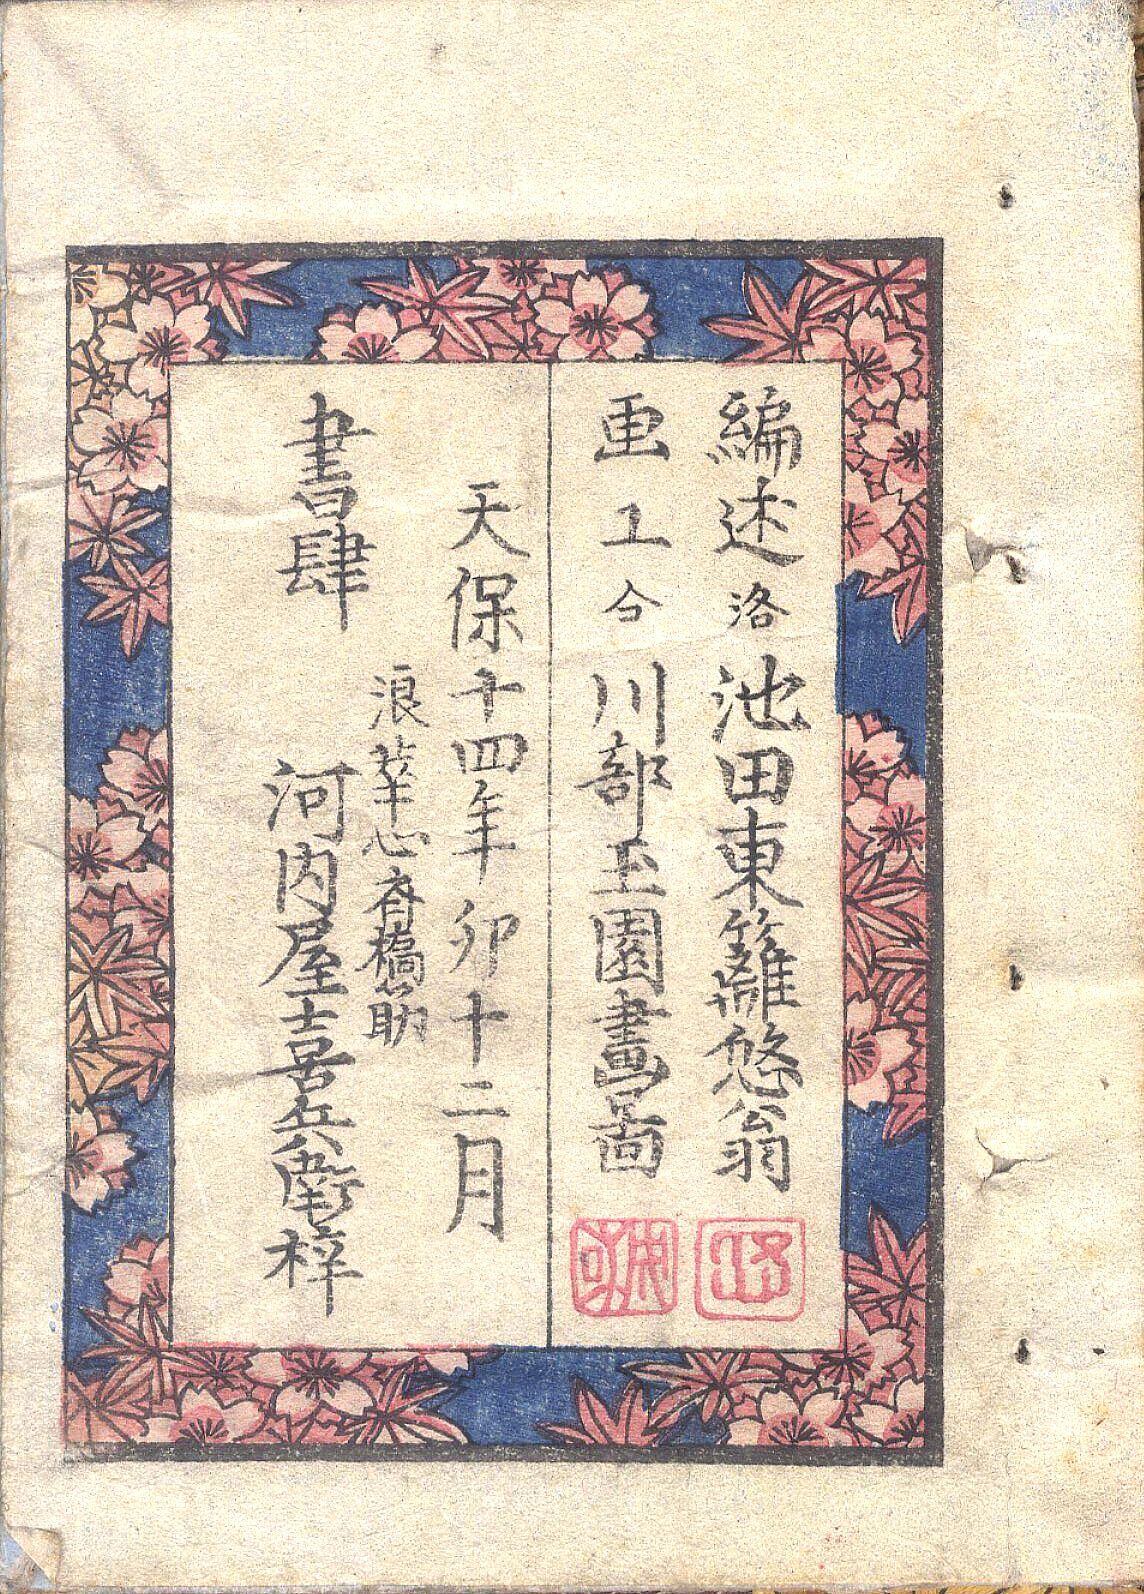 編述 洛 池田東籬悠翁
画工 仝 川部玉園畫啚
天保十四年卯十二月
浪華心斉橋筋
書肆 河内屋喜兵衛梓